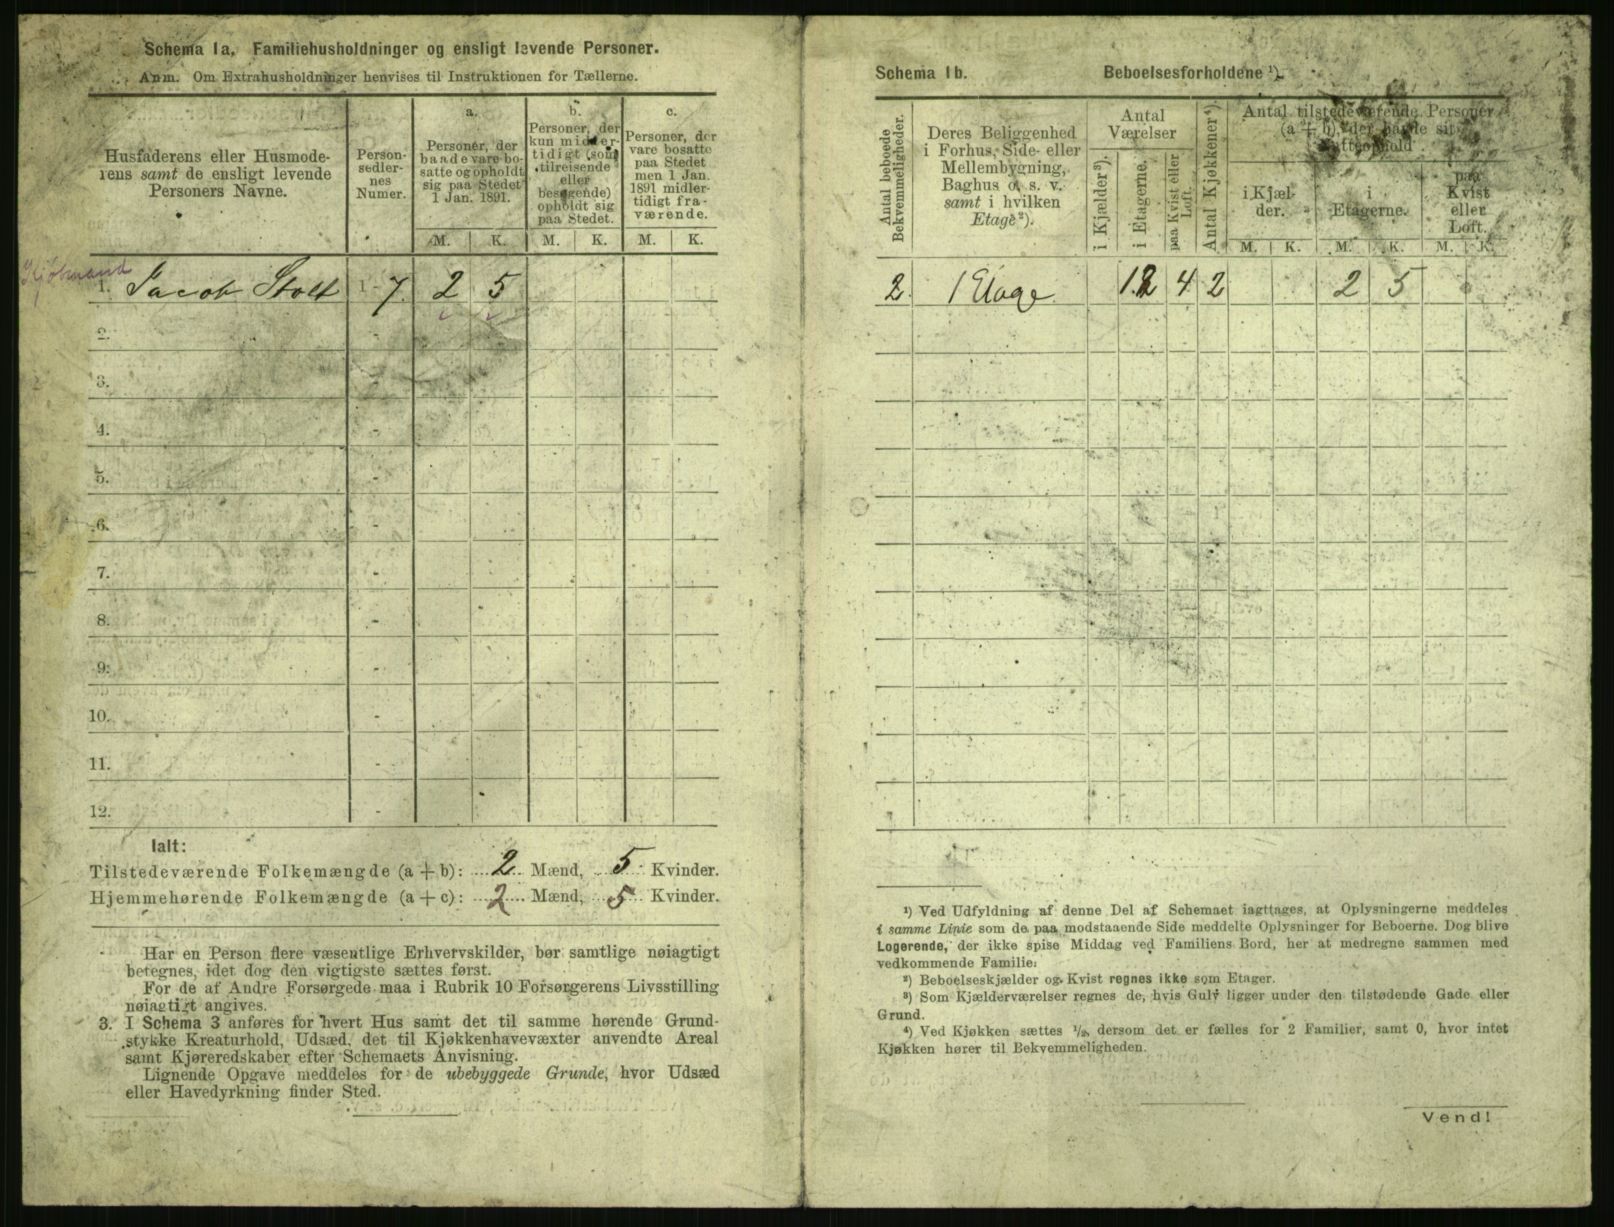 Schema 1a. Familiehusholdninger og ensligt levende Personer.
Anm. Om Extrahusholdninger henvises til Instruktionen for Tællerne.
Husfaderens eller Husmode-
rens samt de ensligt levende
Personers Navne.
Person-
sedler-
nes
Numer.
a.
Personer, der
baade vare bo-
satte og opholdt
sig paa Stedet
1 Jan. 1891.
b.
Personer, der
kun midler-
tidigt (som
tilreisende
eller
besøgende)
opholdt sig
paa Stedet.
c.
Personer, der
vare bosatte
paa Stedet
men 1 Jan.
1891 midler-
tidigt fra-
værende.
M. K. M. K. M. K.
Kjøbmand
1. Jacob Stolt 1 - 7. 2 5
2. -
3. -
4. -
5. -
6. -
7. -
8. -
9. -
10. -
11. -
12. -
Ialt:
Tilstedeværende Folkemængde (a + b): 2 Mænd, 5 Kvinder.
Hjemmehørende Folkemængde (a + c): 2 Mænd, 5 Kvinder.
Har en Person flere væsentlige Erhvervskilder, bør samtlige nøiagtigt
betegnes, idet dog den vigtigste sættes først.
For de af Andre Forsørgede maa i Rubrik 10 Forsørgerens Livsstilling
nøiagtigt angives.
3. I Schema 3 anføres for hvert Hus samt det til samme hørende Grund-
stykke Kreaturhold, Udsæd, det til Kjøkkenhavevæxter anvendte Areal
samt Kjøreredskaber efter Schemaets Anvisning.
Lignende Opgave meddeles for de ubebyggede Grunde, hvor Udsæd
eller Havedyrkning finder Sted.
Schema 1b. Beboelsesforholdene ¹).
Antal beboede
Bekvemmeligheder.
Deres Beliggenhed
i Forhus, Side- eller
Mellembygning,
Baghus o. s. v.
samt i hvilken
Etage²).
Antal
Værelser
i Kjælder³).
i Etagerne.
paa Kvist eller
Loft.
Antal Kjøkkener⁴).
Antal tilstedeværende Personer
(a + b), der havde sit
Natteophold
i Kjæl-
der.
i
Etagerne.
paa
Kvist
eller
Loft.
M. K. M. K. M. K.
2. 1 Etage 12 4 2 2 5
¹) Ved Udfyldning af denne Del af Schemaet iagttages, at Oplysningerne meddeles
i samme Linie som de paa modstaaende Side meddelte Oplysninger for Beboerne. Dog blive
Logerende, der ikke spise Middag ved Familiens Bord, her at medregne sammen med
vedkommende Familie.
²) Beboelseskjælder og Kvist regnes ikke som Etager.
³) Som Kjælderværelser regnes de, hvis Gulv ligger under den tilstødende Gade eller
Grund.
⁴) Ved Kjøkken sættes ½, dersom det er fælles for 2 Familier, samt 0, hvor intet
Kjøkken hører til Bekvemmeligheden.
Vend!